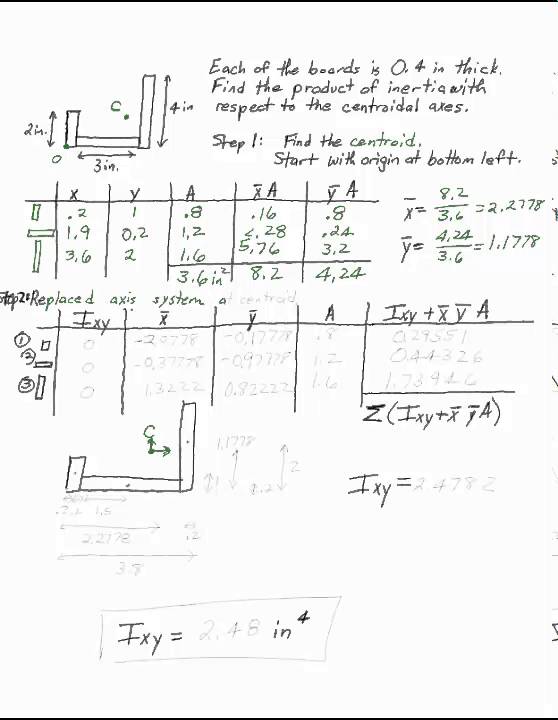 Each of the boards is 0.4 in thick.
Find the product of inertia with
respect to the centroidal axes.
Step 1: Find the centroid.
Start with origin at bottom left.
2in.
C
4in
O
3in.
x y A x̄A ȳA
.2 1 .8 .16 .8
1.9 0.2 1.2 2.28 .24
3.6 2 1.6 5.76 3.2
3.6in² 8.2 4.24
x̄ = 8.2/3.6 = 2.2778
ȳ = 4.24/3.6 = 1.1778
Step 2: Replaced axis system at centroid
Ixy x̄ ȳ A Ixy + x̄ ȳ A
① 0 -2.0778 -0.17778 .8 0.29551
② 0 -0.37778 -0.97778 1.2 0.44326
③ 0 1.3222 0.82222 1.6 1.73946
Σ(Ixy + x̄ ȳ A)
C
1.1778
1
2
.2
1.5
2.2778
.2
3.8
Ixy = 2.4782
Ixy = 2.48 in⁴